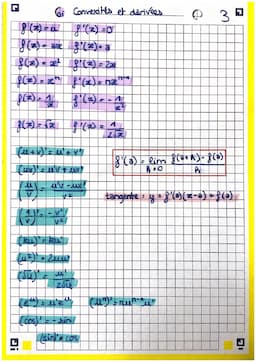 Convexités et dérivées 3
f(x) = a f'(x) = 0
f(x) = ax f'(x) = a
f(x) = x² f'(x) = 2x
f(x) = xⁿ f'(x) = nxⁿ⁻¹
f(x) = 1/x f'(x) = -1/x²
f(x) = √x f'(x) = 1/2√x
(u+v)' = u'+v'
(uv)' = u'v + uv'
f'(a) = lim h→0 f(a+h) - f(a) / h
(u/v)' = u'v - uv' / v²
tangente : y = f'(a)(x-a) + f(a)
(1/v)' = -v'/v²
(ku)' = ku'
(u²)' = 2uu'
(√u)' = u'/2√u
(eᵘ)' = u'eᵘ (uⁿ)' = nuⁿ⁻¹u'
(cos)' = -sin
(sin)' = cos